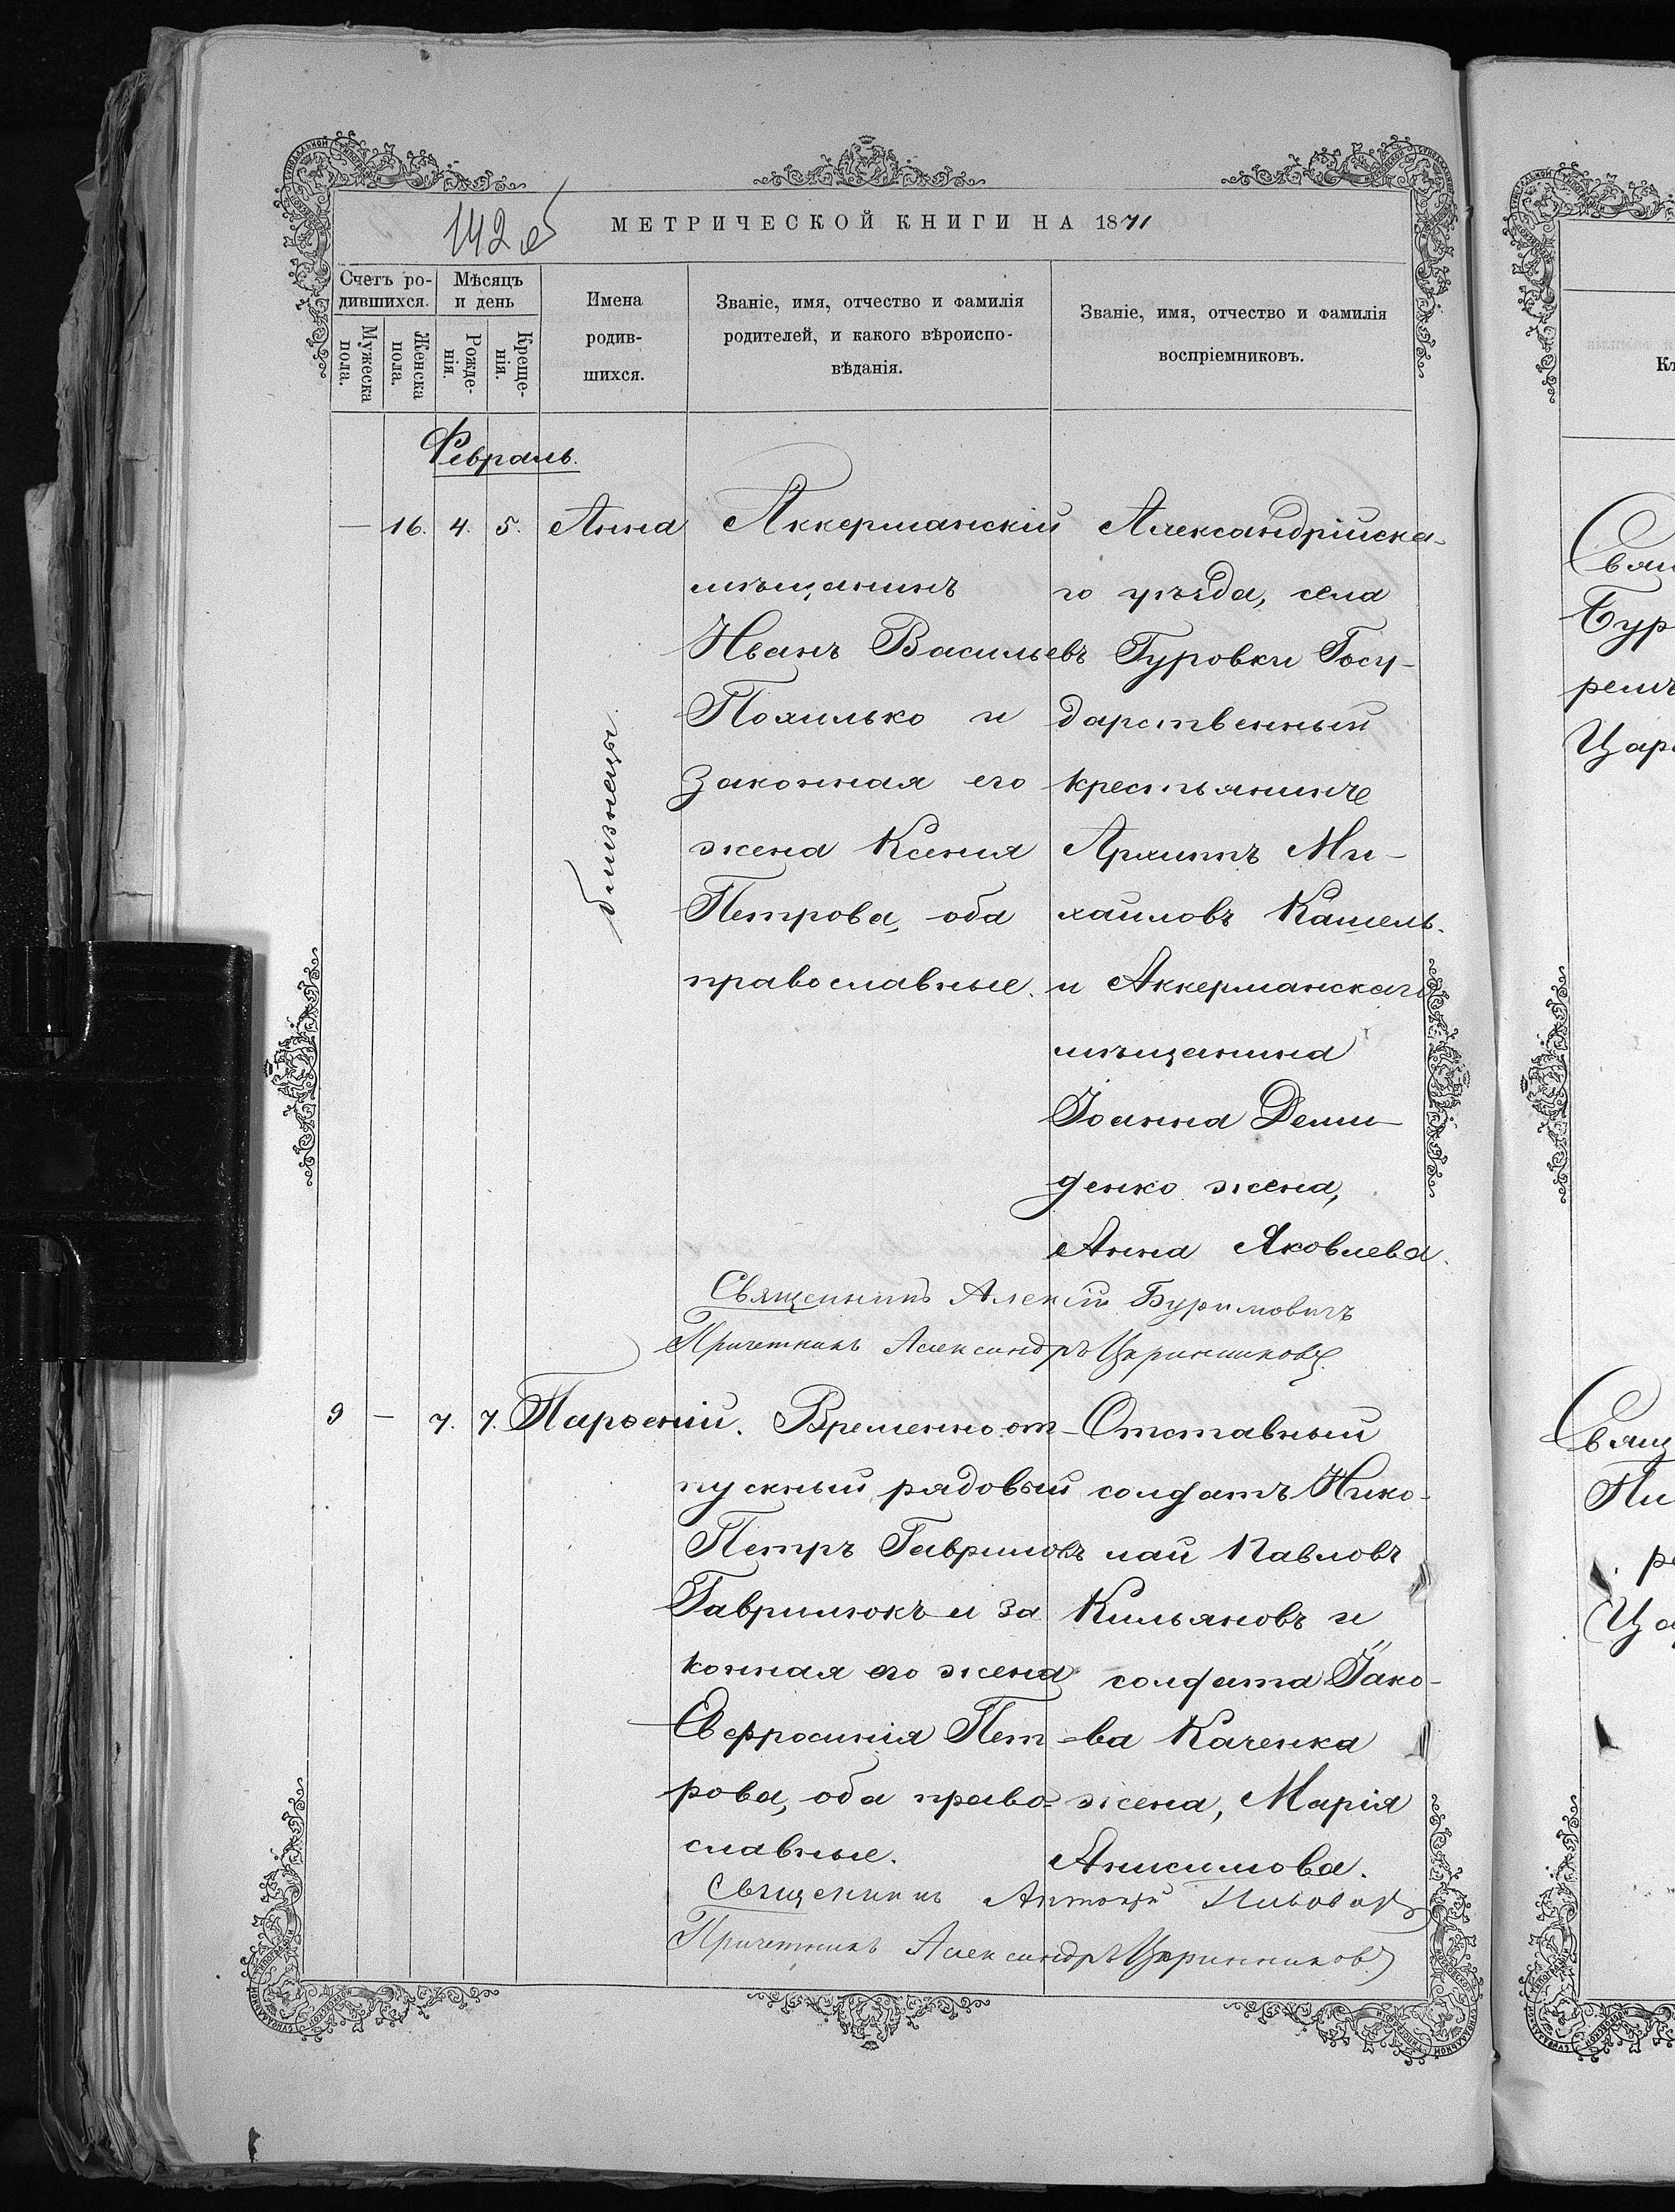 142 об
МЕТРИЧЕСКОЙ КНИГИ НА 1871
Счетъ ро-
дившихся.
Мѣсяцъ
и день
Мужеска
пола.
Женска
пола.
Рожде-
нія.
Креще-
нія.
Имена
родив-
шихся.
Званіе, имя, отчество и фамилія
родителей, и какого вѣроиспо-
вѣданія.
Званіе, имя, отчество и фамилія
воспріемниковъ.
Февраль.
— 16. 4. 5. Анна
близнецы
Аккерманскій
мѣщанинъ
Иванъ Васильевъ
Похилько и
законная его
жена Ксенія
Петрова, оба
православные.
Александрійска-
го уѣзда, села
Гуровки Госу-
дарственный
крестьянинъ
Архипъ Ми-
хаиловъ Кашель
и Аккерманскаго
мѣщанина
Іоанна Деми-
денко жена,
Анна Яковлева.
Священникъ Алексій Буримовичъ
Причетникъ Александръ
9 — 7. 7. Парѳеній.
Временно от-
пускный рядовый
Петръ Гавриловъ
Гаврилюкъ и за
конная его жена
Евфросинія Пет-
рова, оба право-
славные.
Отставный
солдатъ Нико-
лай Павловъ
Кильяновъ и
солдата Іако-
ва Каченка
жена, Марія
Анисимова.
Священникъ Антоній
Причетникъ Александръ
Свящ
Бур
Цар
Свящ
Пи